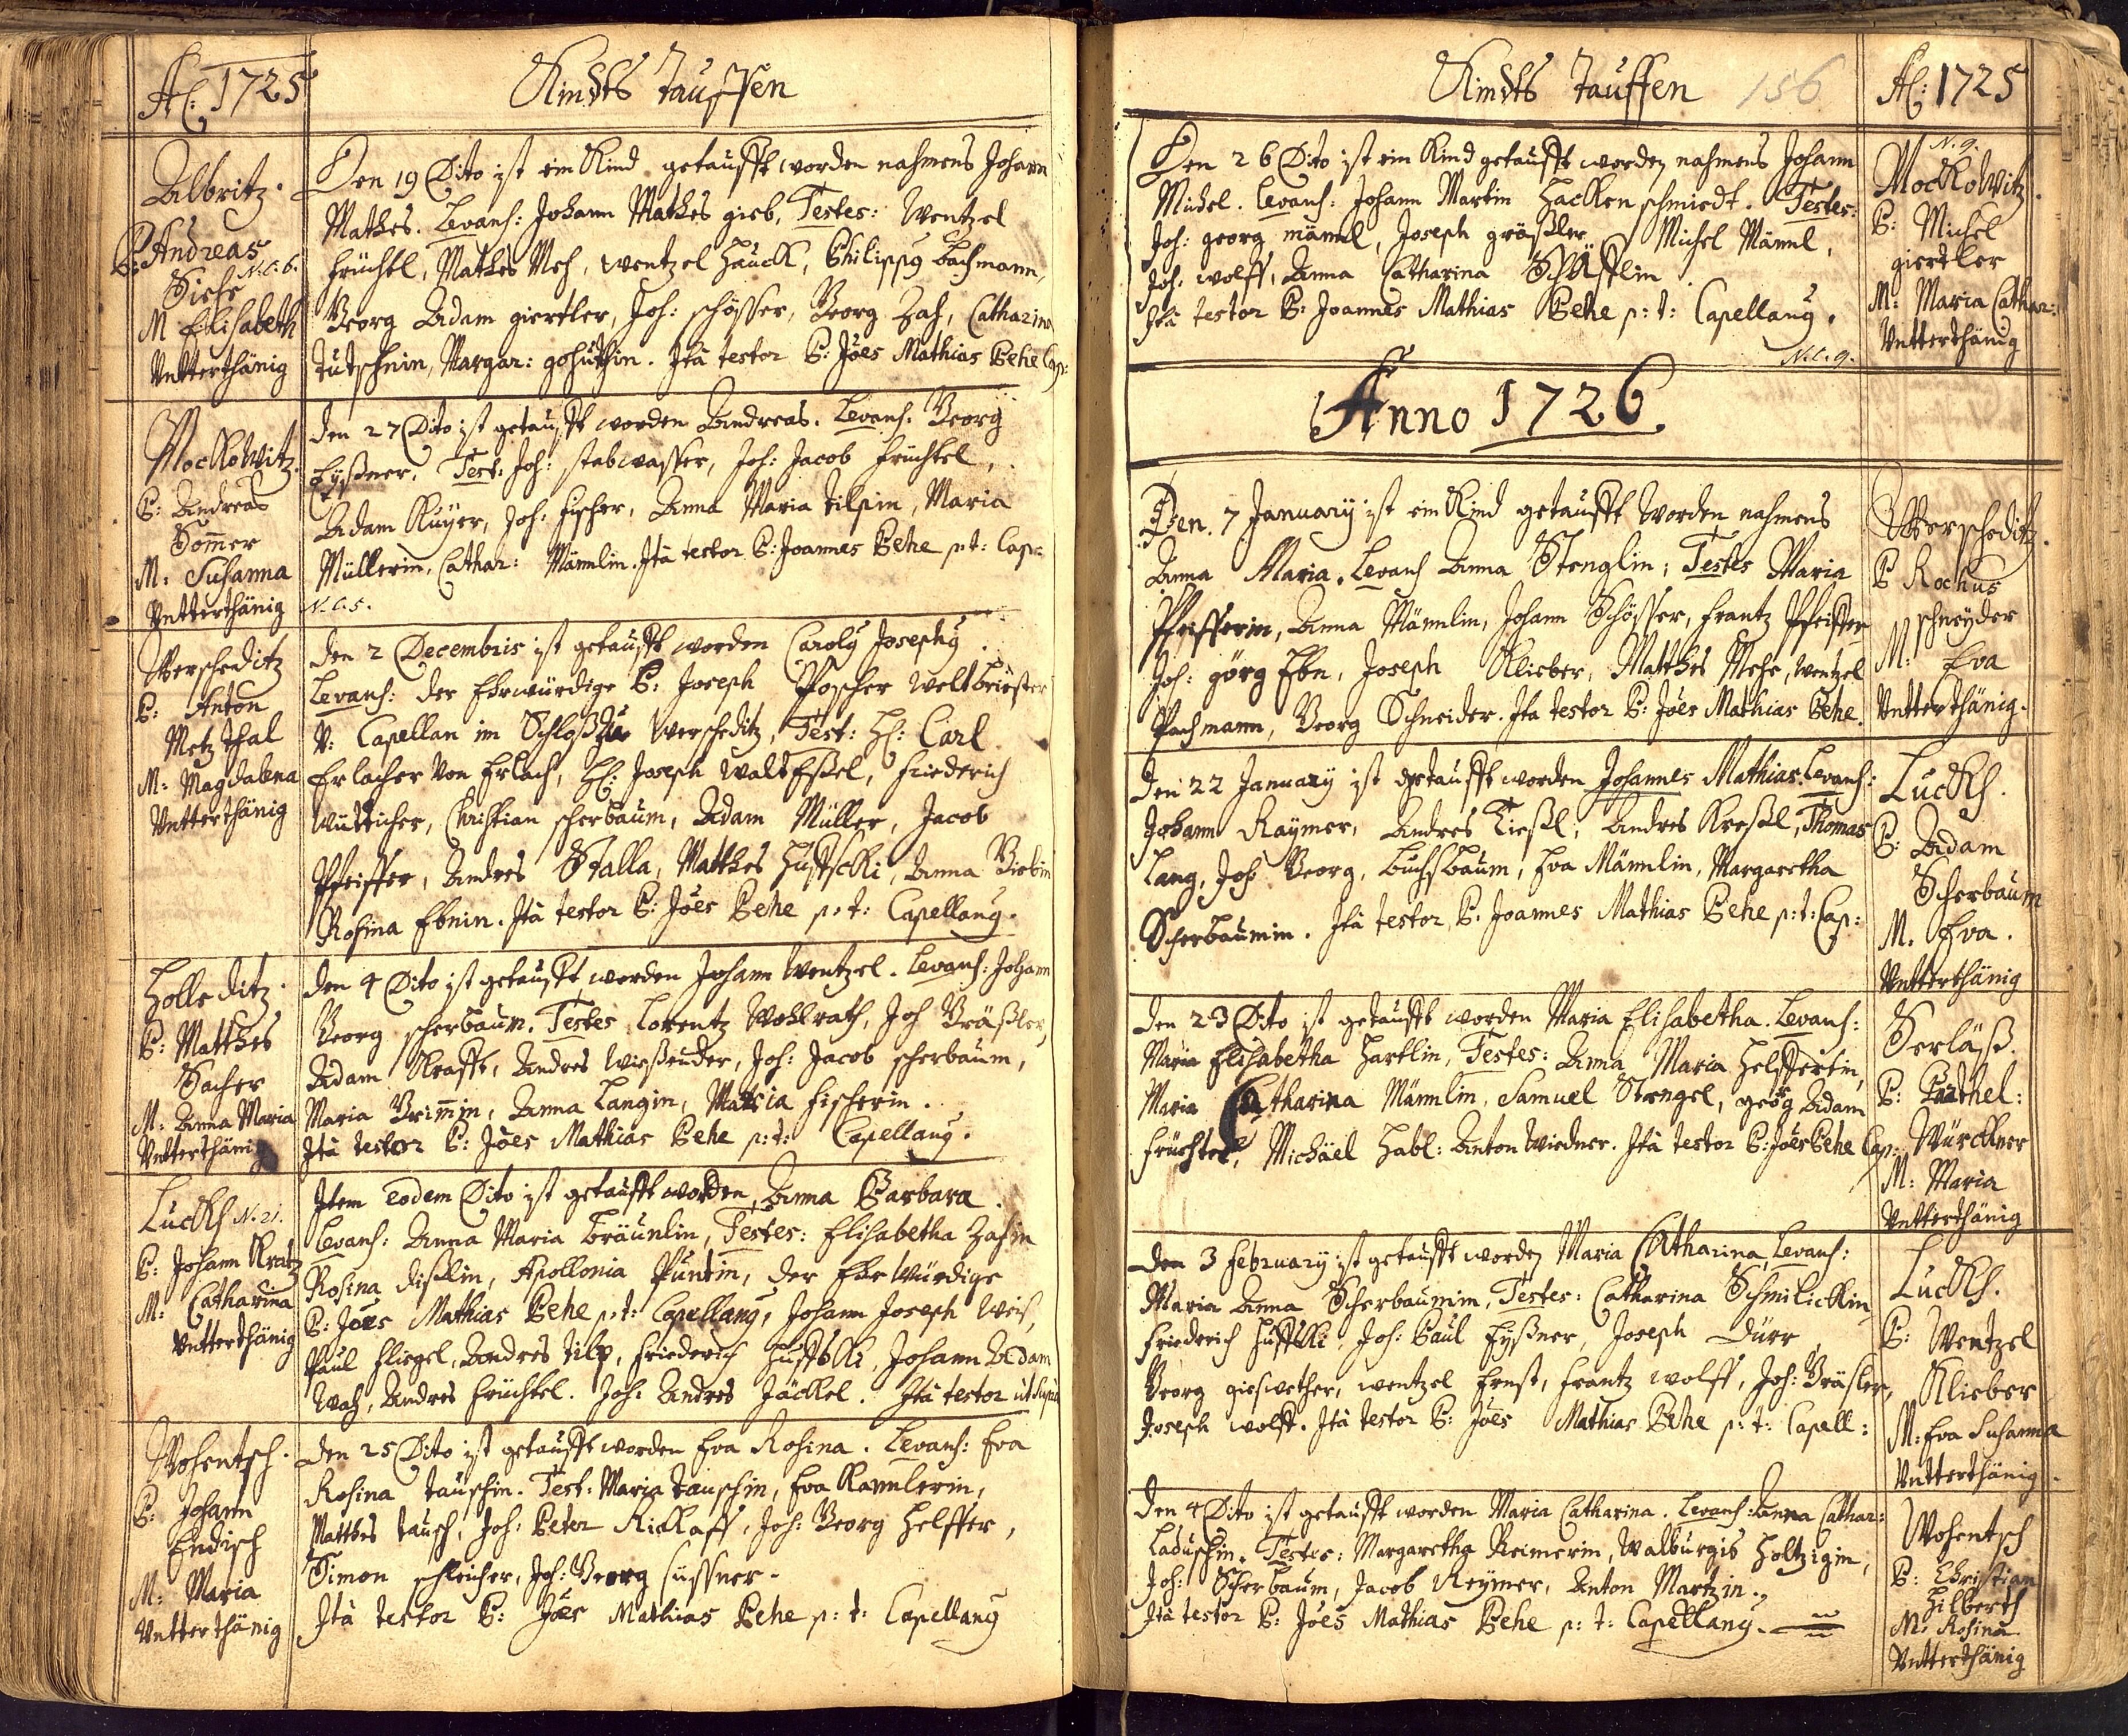 Aõ: 1725
Kindts Tauffen
Albritz.
P: Andreas
N.C.6.
Siehe
M Elisabeth
Untterthänig
Den 19 Dito ist ein Kind getaufft worden nahmens Johann
Mathes. Levans: Johann Mathes gieb, Testes: Wentzel
früchtl, Mathes Meh, wentzel Hauck, Philippg Bachmann,
Georg Adam giertler, Joh: schösser, Georg Zah, Catharina
Tutschnin, Margar: gohuthin. Ità testor P: Jöes Mathias Behe Cap:
Mockowitz.
P: Andreas
Som̃er
M: Susanna
Untterthänig
den 27 Dito ist getaufft worden Andreas. Levans. Georg
Eyßner. Test: Joh: stabwasser, Joh: Jacob früchtel,
Adam Küyer, Joh: fischer, Anna Maria Tilpin, Maria
Müllerin, Cathar: Männlin. Ità testor P: Joannes Behe p: t: Cap:
N.C.5.
Werscheditz
P: Anton
Metzthal
M: Magdalena
Untterthänig
den 2 Decembris ist getaufft worden Carolg Josephg.
Levans: der Ehrwürdige P: Joseph Poscher weltbriester
V: Capellan im Schloß zu Werscheditz, Test: H: Carl
Erlacher von Erlach, H: Joseph waldhessel, friederich
Wutticher, Christian scherbaum, Adam Müller, Jacob
Pfeiffer, Andres Stalla, Matthes Hustschki, Anna Giebin
Rosina Ebnin. Ità testor P: Jöes Behe p: t: Capellang.
Holleditz.
P: Matthes
Sacher
M: Anna Maria
Untterthänig
den 4 Dito ist getaufft worden Johann Wentzel. Levans: Johann
Georg scherbaum. Testes Lorentz Wohlrath, Joh Gräßler,
Adam Krafft, Andres wießender, Joh: Jacob scherbaum,
Maria Grim̃in, Anna Langin, Maria fischerin.
Ità testor P: Jöes Mathias Behe p: t: Capellang.
Luckh N.21.
P: Johann Kratz
M: Catharina
Untterthänig
Item eodem Dito ist getaufft worden Anna Barbara.
Levans: Anna Maria Bräunlin, Testes: Elisabetha Zahin
Rosina dißlin, Apollonia Puntin, der Ehrwürdige
P: Joes Mathias Behe p: t: Capellang, Johann Joseph Weiß,
Paul fliegel, Andres Tilp, friederich Hustski, Johann Adam
Wah, Andres früchtel. Joh: Andres Jäckel. Ità testor ut supra
Wohentsch.
P: Johann
Endisch
M: Maria
Untterthänig
Den 25 Dito ist getaufft worden Eva Rosina. Levans: Eva
Rosina Tauschin. Test: Maria Tauschin, Eva Kamlerin,
Matthes Tausch, Joh: Peter Kicklaff, Joh: Georg Helffer,
Simon schleicher, Joh: Georg Cüssner.
Ità testor P: Jöes Mathias Behe p: t: Capellang
Kindts Tauffen
156
Aõ: 1725
Den 26 Dito ist ein Kind getaufft worden nahmens Johann
Michel. Levans: Johann Martin Hackenschmiedt. Testes:
Joh: georg männl, Joseph gräßler, Michel Männl,
Joh: wolff, Anna Catharina Schüsslin.
Ità testor P: Joannes Mathias Behe p: t: Capellang.
N.C.9.
N.9.
Mockowitz.
P: Michel
giertler
M: Maria Cathar:
Untterthänig
Anno 1726.
Den 7 January ist ein Kind getaufft worden nahmens
Anna Maria. Levans Anna Stenglin; Testes Maria
Pfeifferin, Anna Männlin, Johann Schösser, frantz Pfeiffer
Joh: görg Ebn, Joseph Klieber, Matthes Mehe, wentzel
Pachmann, Georg Schneider. Ita testor P: Jöes Mathias Behe.
Werscheditz.
P Rochus
schneyder
M: Eva
Untterthänig.
Den 22 January ist getaufft worden Johannes Mathias. Levans:
Johann Raymer, Andres Tießl, Andres Kreßl, Thomas
Lang, Joh Georg. Buchsbaum, Eva Männlin, Margaretha
Scherbaumin. Ità testor P: Joannes Mathias Behe p: t: Cap:
Luckh.
P: Adam
Scherbaum
M. Eva.
Untterthänig
den 23 Dito ist getaufft worden Maria Elisabetha. Levans:
Maria Elisabetha Hartlin, Testes: Anna Maria Helffertin,
Maria Catharina Männlin, Samuel Stengel, geörg Adam
früchtel, Michäel Habl: Anton Wiedner. Ità testor P: Jöes Behe Cap:
Serläß.
P: Barthel:
Würckner
M: Maria
Untterthänig
den 3 February ist getaufft worden Maria Catharina, Levans:
Maria Anna Scherbaumin, Testes: Catharina Schmilickin
friederich Hustski, Joh: Paul Eyßner, Joseph Dürr
Georg giehswether, wentzel Ernst, frantz wolff, Joh: Gräsler,
Joseph wolff. Ità testor P: Jöes Mathias Behe p: t: Capell:
Luckh.
P: Wentzel
Klieber
M: Eva Susanna
Untterthänig.
Den 4 Dito ist getaufft worden Maria Catharina. Levans: Anna Cathar:
Laduschin. Testes: Margaretha Reimerin, Walburgis Holtzigin,
Joh: Scherbaum, Jacob Reymer, Anton Martzin.
Ità testor P: Jöes Mathias Behe p: t: Capellang.
Wohentsch
P: Christian
Hilberth
M: Rosina
Untterthänig